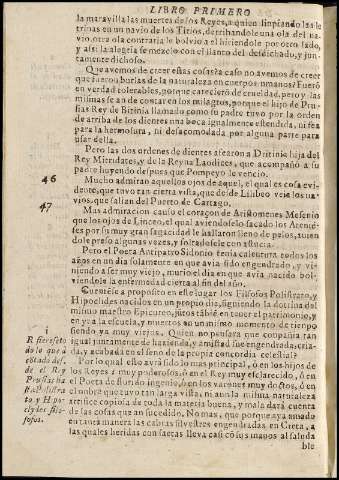 LIBRO PRIMERO
la maravilla las muertes de los Reyes, a quien limpiando las le
trinas en un navio de los Tirios, derribandole una ola del na-
vio, otra ola contraria le bolvio a el hiriendole por otro lado,
y assi la alegria se mezclo con el llanto del desdichado, y jun-
tamente dichoso.
Que avemos de creer destas cosas? acaso no avemos de creer
que fueron burlas de la naturaleza en cuerpos umanos? Fuerõ
en verdad tolerables, porque carecierõ de crueldad, pero y las
mismas se an de contar en los milagros, porque el hijo de Pru-
sias Rey de Bitinia llamado como su padre tuvo por la orden
de arriba de los dientes una boca igualmente estendida, ni fea
para la hermosura, ni desacomodada por alguna parte para
usar della.
Pero las dos ordenes de dientes afearon a Dritinie hija del
Rey Mitridates, y de la Reyna Laodices, que acompañó a su
padre huyendo despues que Pompeyo le vencio.
46
Mucho admiran aquellos ojos de aquel, el qual es cosa evi-
dente, que tuvo tan cierta vista, que de de Lilibeo veia los na-
vios, que salian del Puerto de Cartago.
47
Mas admiracion causo el coraçon de Aristomenes Mesenio
que los ojos de Linceo, el qual aviendoselo sacado los Atenië-
ses por su muy gran sagacidad le hallaron lleno de pelos, avien
dole preso algunas vezes, y soltadosele con astucia.
Pero el Poeta Antipatro Sidonio tenia calentura todos los
años en un dia solamente en que avia sido engendrado, y vi-
niendo a ser muy viejo, murio el dia en que avia nacido bol-
viendole la enfermedad cierta al fin del año.
Contaréte a proposito en este lugar los Filosofos Polistrato, y
Hipoclides nacidos en un propio dia, siguiendo la dotrina del
mismo maestro Epicureo, jũtos tãbiẽ en tener el patrimonio, y
en ye a la escuela, y muertos en un mismo momento de tiempo
siendo ya muy viejos. Quien no pensara que compañia tan
igual juntamente de hazienda, y amistad fue engendrada, cria-
da, y acabada en el seno de la propia concordia celestial?
Por lo qual esto avrá sido lo mas principal, ó en los hijos de
los Reyes muy poderosos, ó en el Rey muy esclarecido, ó en
el Poeta de florido ingenio, ó en los varones muy dotos, ó en
el ombre que tuvo tan larga vista, ni aun la misma naturaleza
artifice copiosa de toda la materia buena, y mala dará cuenta
de las cosas que an sucedido. No mas, que porque aya amado
en tanta manera las cabras silvestres engendradas en Creta, a
las quales heridas con saetas lleva casi cõ sus manos al saluda
ble